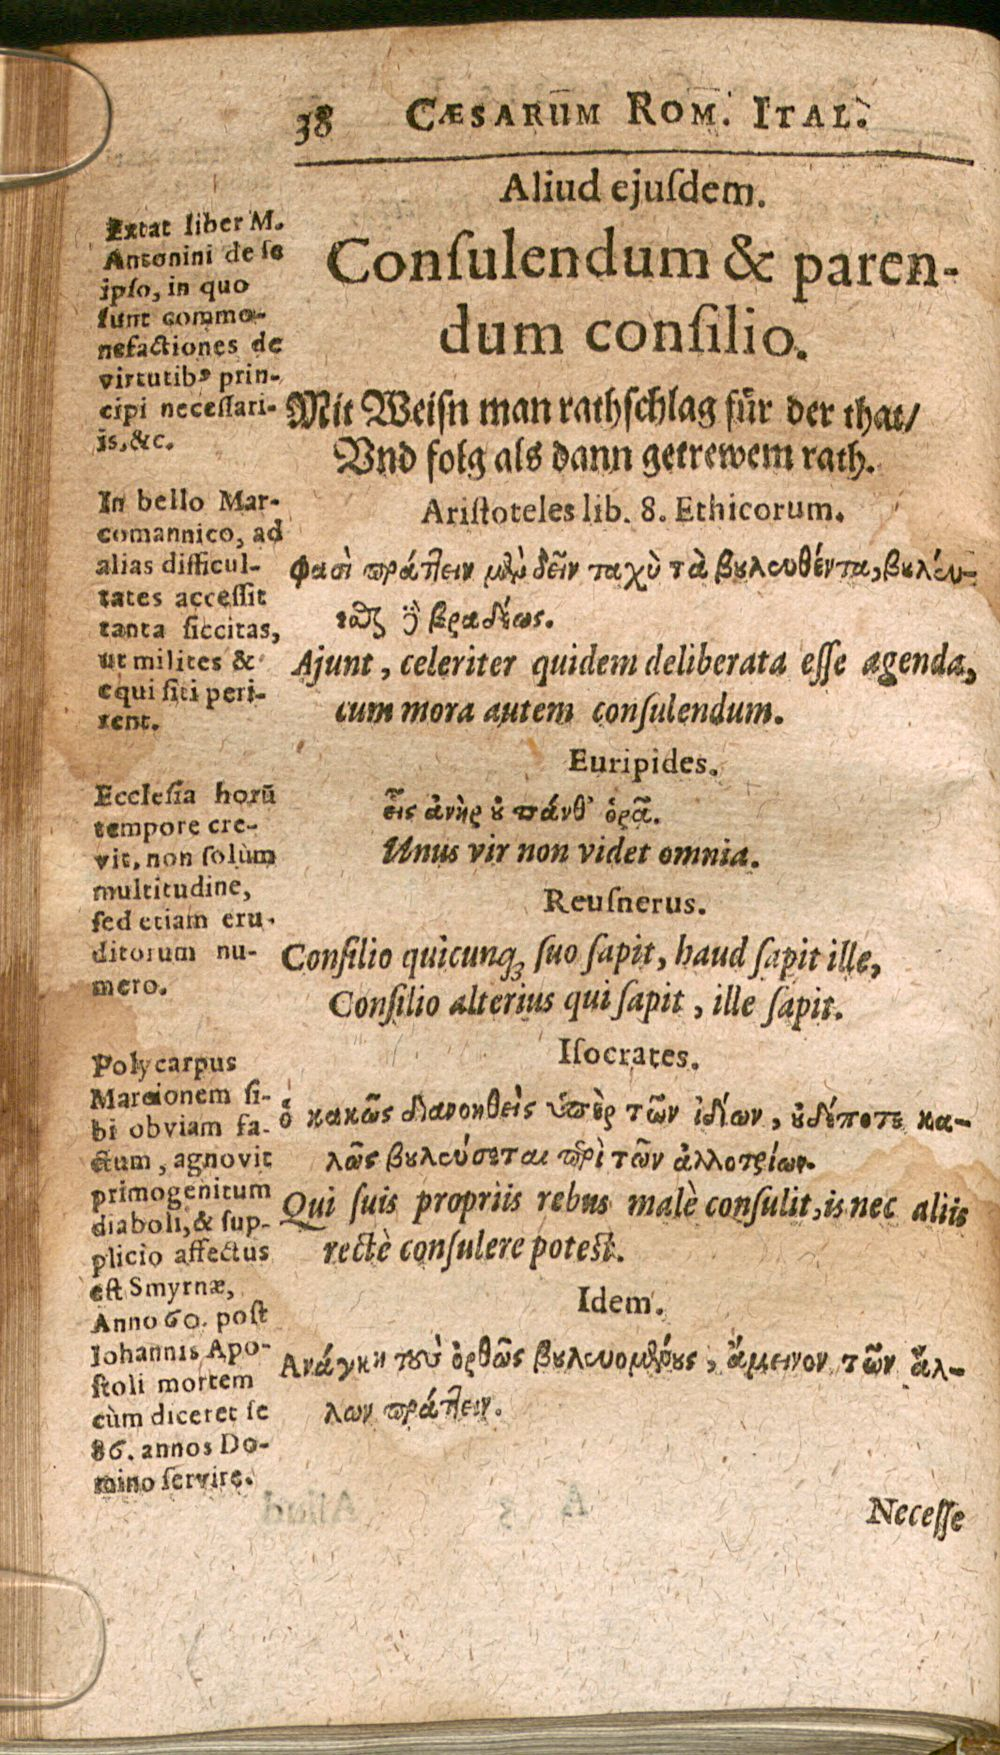 38 CÆSARUM ROM. ITAL.
Aliud ejuſdem.
Conſulendum & paren-
dum conſilio.
Mit Weiſn man rathſchlag für der that/
Vnd folg als dann getrewem rath.
Ariſtoteles lib. 8. Ethicorum.
Φασὶ πράτ̔ειν μὲν δεῖν ταχὺ τὰ βουλευθέντα, βουλεύ-
εσθαι δὲ βραδέως.
Ajunt, celeriter quidem deliberata eſſe agenda,
cum mora autem conſulendum.
Euripides.
εἷς ἀνὴρ οὐ πάνθ' ὁρᾷ.
Unus vir non videt omnia.
Reuſnerus.
Conſilio quicunqꝫ ſuo ſapit, haud ſapit ille,
Conſilio alterius qui ſapit, ille ſapit.
Iſocrates.
ὁ κακῶς διανοηθεὶς ὑπὲρ τῶν ἰδίων, οὐδέποτε κα-
λῶς βουλεύσεται περὶ τῶν ἀλλοτρίων.
Qui ſuis propriis rebus malè conſulit, is nec aliis
rectè conſulere poteſt.
Idem.
Ανάγκη τοὺ ὀρθῶς βουλευομένους, ἄμεινον τῶν ἄλ-
λων πράττειν.
Neceſſe
Extat liber M.
Antonini de ſe
ipſo, in quo
ſunt commo-
nefactiones de
virtutibꝰ prin-
cipi neceſſari-
is, &c.
In bello Mar-
comannico, ad
alias difficul-
tates acceſſit
tanta ſiccitas,
ut milites &
equi ſiti peri-
rent.
Eccleſia horū
tempore cre-
vit, non ſolùm
multitudine,
ſed etiam eru-
ditorum nu-
mero.
Polycarpus
Marcionem ſi-
bi obviam fa-
ctum, agnovit
primogenitum
diaboli, & ſup-
plicio affectus
eſt Smyrnæ,
Anno 60. poſt
Iohannis Apo-
ſtoli mortem
cùm diceret ſe
86. annos Do-
mino ſervire.